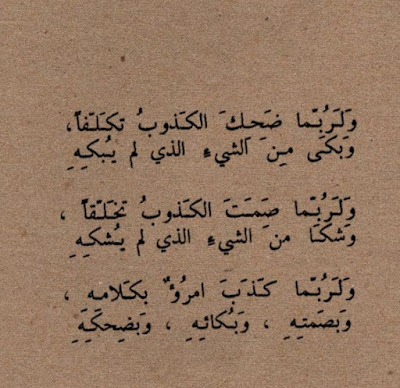 وَلَرُبّما ضَحِكَ الكَذوبُ تكَلّفاً،
وَبَكَى مِنَ الشيءِ الذي لم يُبكِهِ
وَلَرُبّما صَمَتَ الكَذوبُ تخَلّقاً ،
وَشكَا من الشيءِ الذي لم يُشكِهِ
وَلَرُبّما كَذَبَ امرُؤٌ بكَلامِهِ ،
وَبصَمتِهِ ، وَبُكائِهِ ، وَبضِحكِهِ